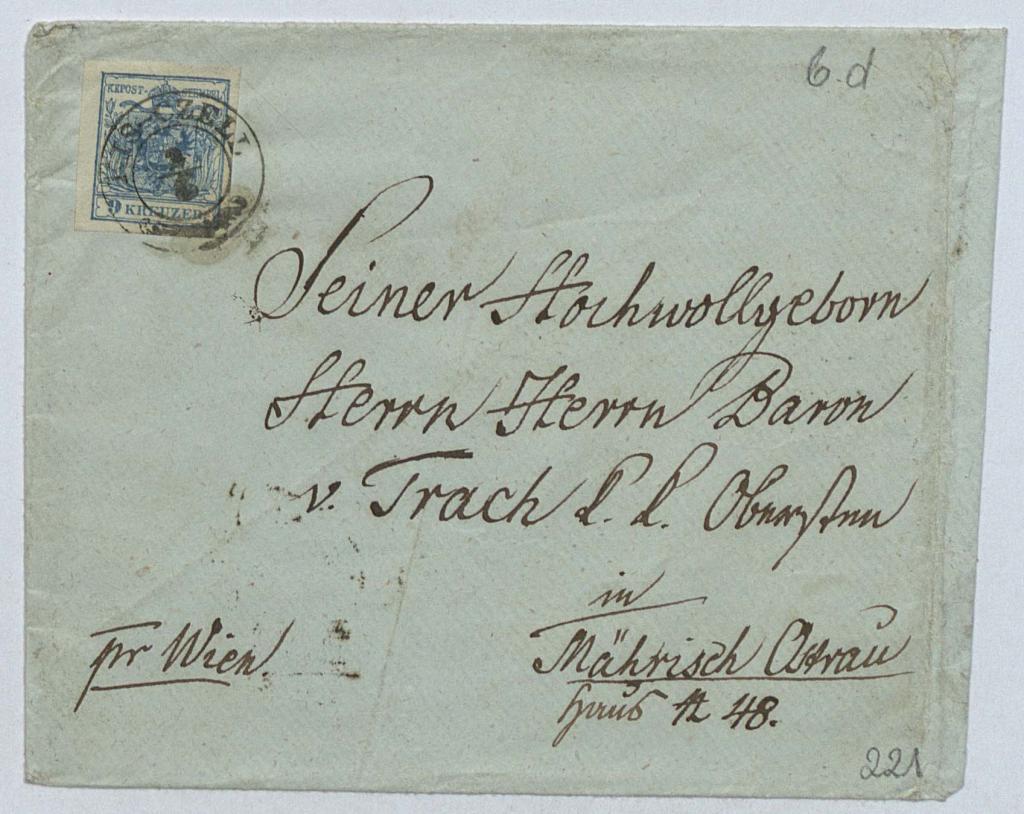 6.d
KKPOST-STEMPEL
ZELL
9 KREUZER
Seiner Hochwollgeborn
Herrn Herrn Baron
v. Trach k. k. Obersten
in
Mährisch Ostrau
Haus N 48.
pr Wien.
221